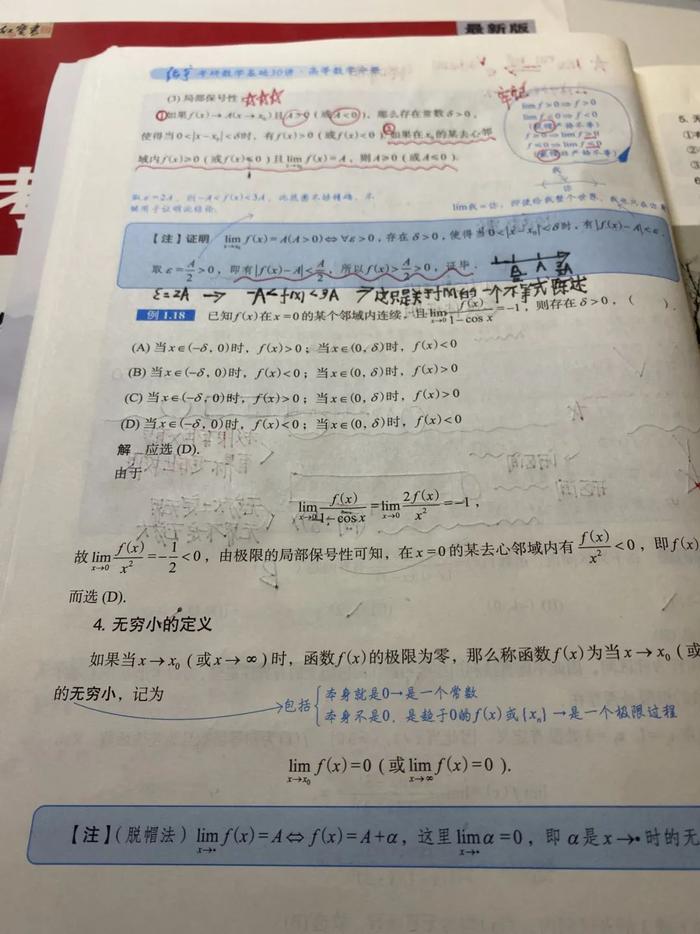 最新版
考研数学基础30讲·高等数学分册
(3) 局部保号性 ☆☆☆
①如果f(x)→A(x→x₀)且A>0(或A<0),那么存在常数δ>0,
使得当0<|x-x₀|<δ时,有f(x)>0(或f(x)<0).②如果在x₀的某去心邻
域内f(x)≥0(或f(x)≤0)且lim f(x)=A,则A≥0(或A≤0).
牢记
lim f>0⇒f>0
lim f<0⇒f<0
f≥0⇒lim f≥0
f≤0⇒lim f≤0
取ε=2A,则-A<f(x)<3A,此范围不够精确,不
能用于证明此结论.
【注】证明 lim_{x→x₀} f(x)=A(A>0)⇔∀ε>0,存在δ>0,使得当0<|x-x₀|<δ时,有|f(x)-A|<ε.
取ε=A/2>0,即有|f(x)-A|<A/2,所以f(x)>A/2>0,证毕.
ε=2A → -A<f(x)<3A → 这只是关于f(x)的一个不等式陈述
例1.18 已知f(x)在x=0的某个邻域内连续,且lim_{x→0} f(x)/(1-cos x)=-1,则存在δ>0,( ).
(A) 当x∈(-δ,0)时,f(x)>0;当x∈(0,δ)时,f(x)<0
(B) 当x∈(-δ,0)时,f(x)<0;当x∈(0,δ)时,f(x)>0
(C) 当x∈(-δ,0)时,f(x)>0;当x∈(0,δ)时,f(x)>0
(D) 当x∈(-δ,0)时,f(x)<0;当x∈(0,δ)时,f(x)<0
解 应选(D).
由于
lim_{x→0} f(x)/(1-cos x)=lim_{x→0} 2f(x)/x²=-1,
故lim_{x→0} f(x)/x²=-1/2<0,由极限的局部保号性可知,在x=0的某去心邻域内有f(x)/x²<0,即f(x)
而选(D).
4. 无穷小的定义
如果当x→x₀(或x→∞)时,函数f(x)的极限为零,那么称函数f(x)为当x→x₀(或
的无穷小,记为
包括{本身就是0→是一个常数
本身不是0,是趋于0的f(x)或{xₙ}→是一个极限过程
lim_{x→x₀} f(x)=0(或lim_{x→∞} f(x)=0).
【注】(脱帽法) lim_{x→•} f(x)=A⇔f(x)=A+α,这里lim_{x→•} α=0,即α是x→•时的无